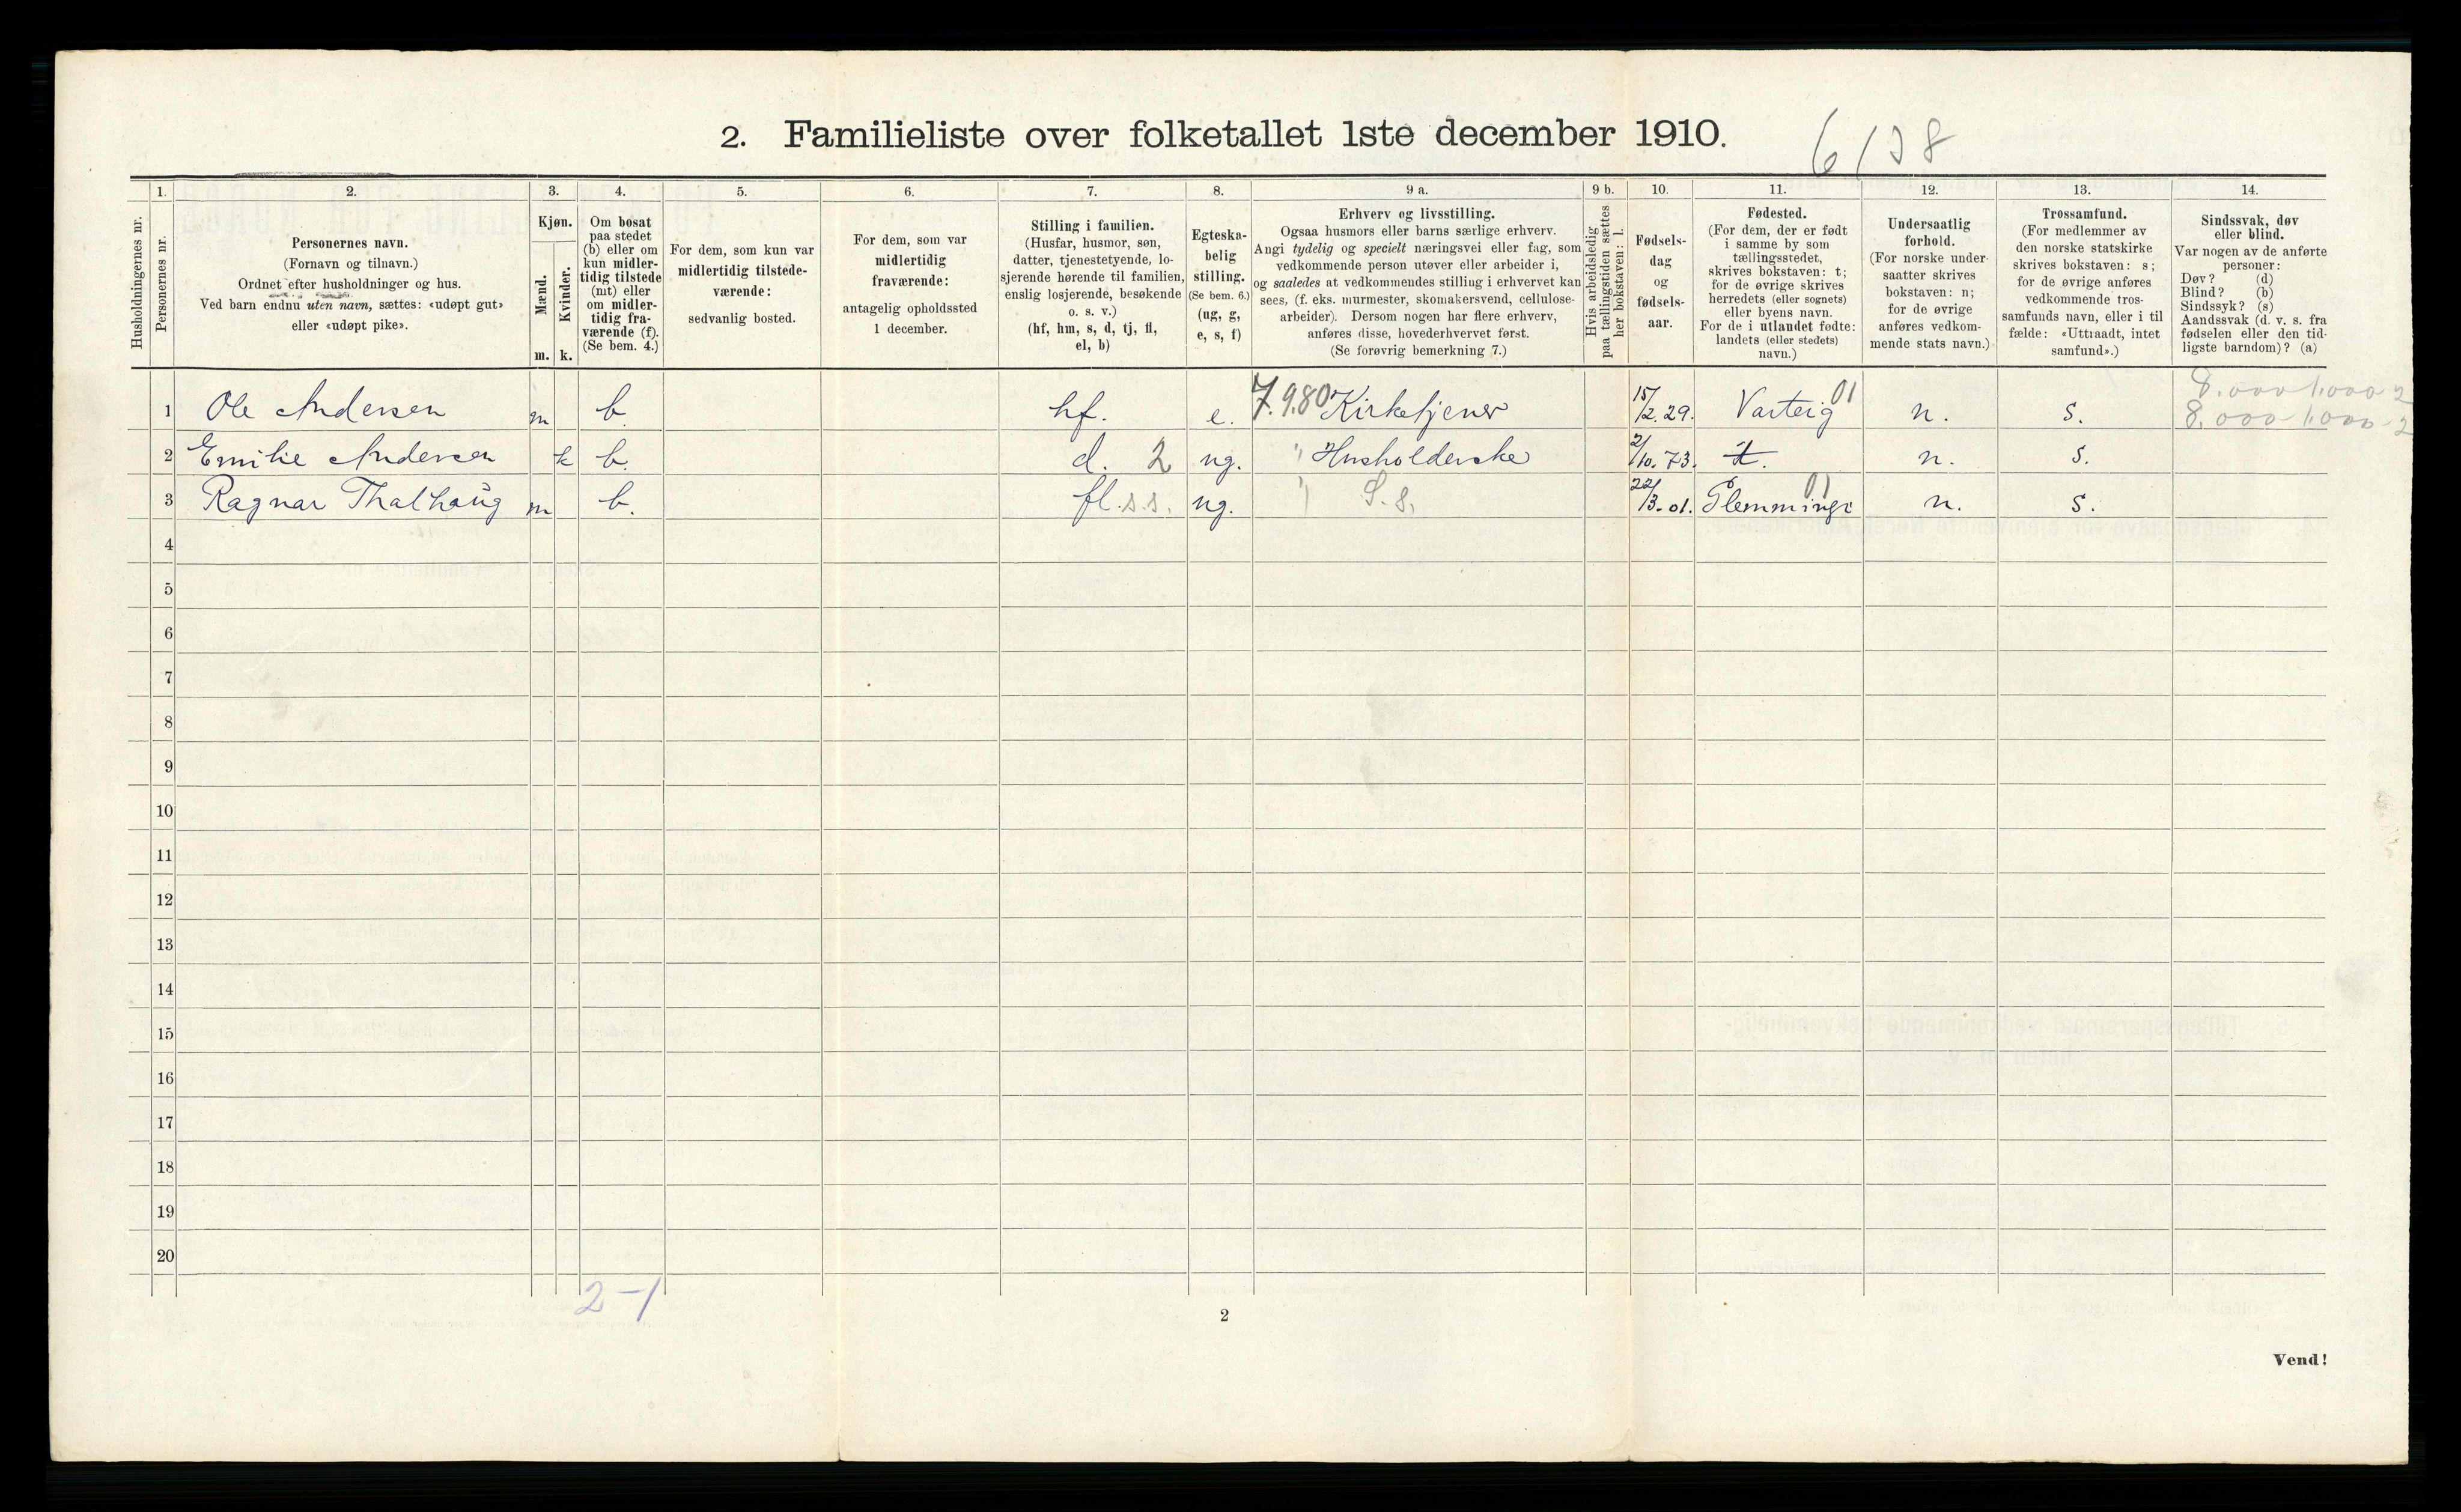 2. Familieliste over folketallet 1ste december 1910.
1. 2. 3. 4. 5. 6. 7. 8. 9 a. 9 b. 10. 11. 12. 13. 14.
Husholdningernes nr.
Personernes nr.
Personernes navn.
(Fornavn og tilnavn.)
Ordnet efter husholdninger og hus.
Ved barn endnu uten navn, sættes: «udøpt gut»
eller «udøpt pike».
Kjøn.
Mænd.
m.
Kvinder.
k.
Om bosat
paa stedet
(b) eller om
kun midler-
tidig tilstede
(mt) eller
om midler-
tidig fra-
værende (f).
(Se bem. 4.)
For dem, som kun var
midlertidig tilstede-
værende:
sedvanlig bosted.
For dem, som var
midlertidig
fraværende:
antagelig opholdssted
1 december.
Stilling i familien.
(Husfar, husmor, søn,
datter, tjenestetyende, lo-
sjerende hørende til familien,
enslig losjerende, besøkende
o. s. v.)
(hf, hm, s, d, tj, fl,
el, b)
Egteska-
belig
stilling.
(Se bem. 6.)
(ug, g,
e, s, f)
Erhverv og livsstilling.
Ogsaa husmors eller barns særlige erhverv.
Angi tydelig og specielt næringsvei eller fag, som
vedkommende person utøver eller arbeider i,
og saaledes at vedkommendes stilling i erhvervet kan
sees, (f. eks. murmester, skomakersvend, cellulose-
arbeider). Dersom nogen har flere erhverv,
anføres disse, hovederhvervet først.
(Se forøvrig bemerkning 7.)
Hvis arbeidsledig
paa tællingstiden sættes
her bokstaven: l.
Fødsels-
dag
og
fødsels-
aar.
Fødested.
(For dem, der er født
i samme by som
tællingsstedet,
skrives bokstaven: t;
for de øvrige skrives
herredets (eller sognets)
eller byens navn.
For de i utlandet fødte:
landets (eller stedets)
navn.)
Undersaatlig
forhold.
(For norske under-
saatter skrives
bokstaven: n;
for de øvrige
anføres vedkom-
mende stats navn.)
Trossamfund.
(For medlemmer av
den norske statskirke
skrives bokstaven: s;
for de øvrige anføres
vedkommende tros-
samfunds navn, eller i til
fælde: «Uttraadt, intet
samfund».)
Sindssvak, døv
eller blind.
Var nogen av de anførte
personer:
Døv? (d)
Blind? (b)
Sindssyk? (s)
Aandssvak (d. v. s. fra
fødselen eller den tid-
ligste barndom)? (a)
8.000 1.000 2
1 Ole Andersen m b. hf. e. 7.9.80 Kirketjener 15/2.29. Varteig 01 n. s. 8.000 1.000-2
2 Emilie Andersen k b. d. 2 ug. " Husholderske 2/10.73. t. n. s.
3 Ragnar Thalhaug m b. fl. s.s. ug. " S.s. 22/3.01. 01 n. s.
4
5
6
7
8
9
10
11
12
13
14
15
16
17
18
19
20
2-1
2
Vend!